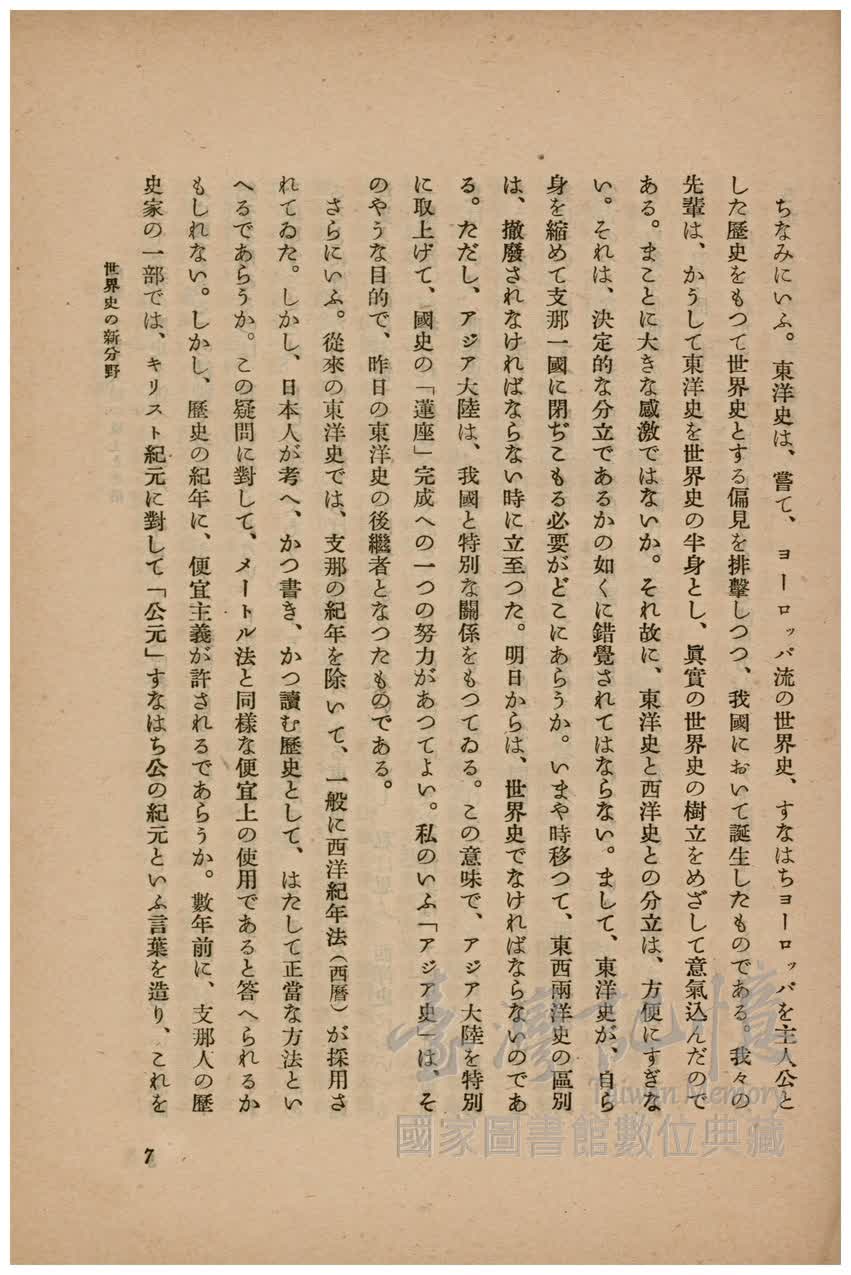 ちなみにいふ。東洋史は、嘗て、ヨーロッパ流の世界史、すなはちヨーロッパを主人公と
した歷史をもつて世界史とする偏見を排擊しつつ、我國において誕生したものである。我々の
先輩は、かうして東洋史を世界史の半身とし、眞實の世界史の樹立をめざして意氣込んだので
ある。まことに大きな感激ではないか。それ故に、東洋史と西洋史との分立は、方便にすぎな
い。それは、決定的な分立であるかの如くに錯覺されてはならない。まして、東洋史が、自ら
身を縮めて支那一國に閉ぢこもる必要がどこにあらうか。いまや時移つて、東西兩洋史の區別
は、撤廢されなければならない時に立至つた。明日からは、世界史でなければならないのであ
る。ただし、アジア大陸は、我國と特別な關係をもつてゐる。この意味で、アジア大陸を特別
に取上げて、國史の「蓮座」完成への一つの努力があつてよい。私のいふ「アジア史」は、そ
のやうな目的で、昨日の東洋史の後繼者となつたものである。
さらにいふ。從來の東洋史では、支那の紀年を除いて、一般に西洋紀年法(西曆)が採用さ
れてゐた。しかし、日本人が考へ、かつ書き、かつ讀む歷史として、はたして正當な方法とい
へるであらうか。この疑問に對して、メートル法と同樣な便宜上の使用であると答へられるか
もしれない。しかし、歷史の紀年に、便宜主義が許されるであらうか。數年前に、支那人の歷
史家の一部では、キリスト紀元に對して「公元」すなはち公の紀元といふ言葉を造り、これを
世界史の新分野
7
臺灣記憶
Taiwan Memory
國家圖書館數位典藏